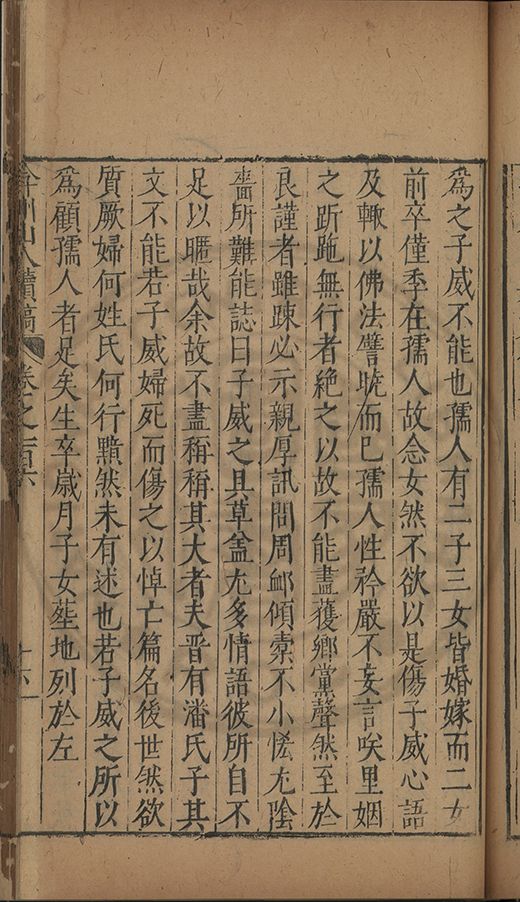 為之子威不能也孺人有二子三女皆婚嫁而二女
前卒僅季在孺人故念女然不欲以是傷子威心語
及輙以佛法譬曉而巳孺人性矜嚴不妄言咲里姻
之跅跑無行者絶之以故不能盡獲鄉黨聲然至於
良謹者雖踈必示親厚訊問周䘏傾橐不小恡尤陰
嗇所難能誌曰子威之具草盖尤多情語彼所自不
足以暱哉余故不盡稱稱其大者夫晉有潘氏子其
文不能若子威婦死而傷之以悼亡篇名後世然欲
質厥婦何姓氏何行黯然未有述也若子威之所以
為顧孺人者足矣生卒歲月子女塟地列於左
弇州山人續稿 卷之一百六 十六